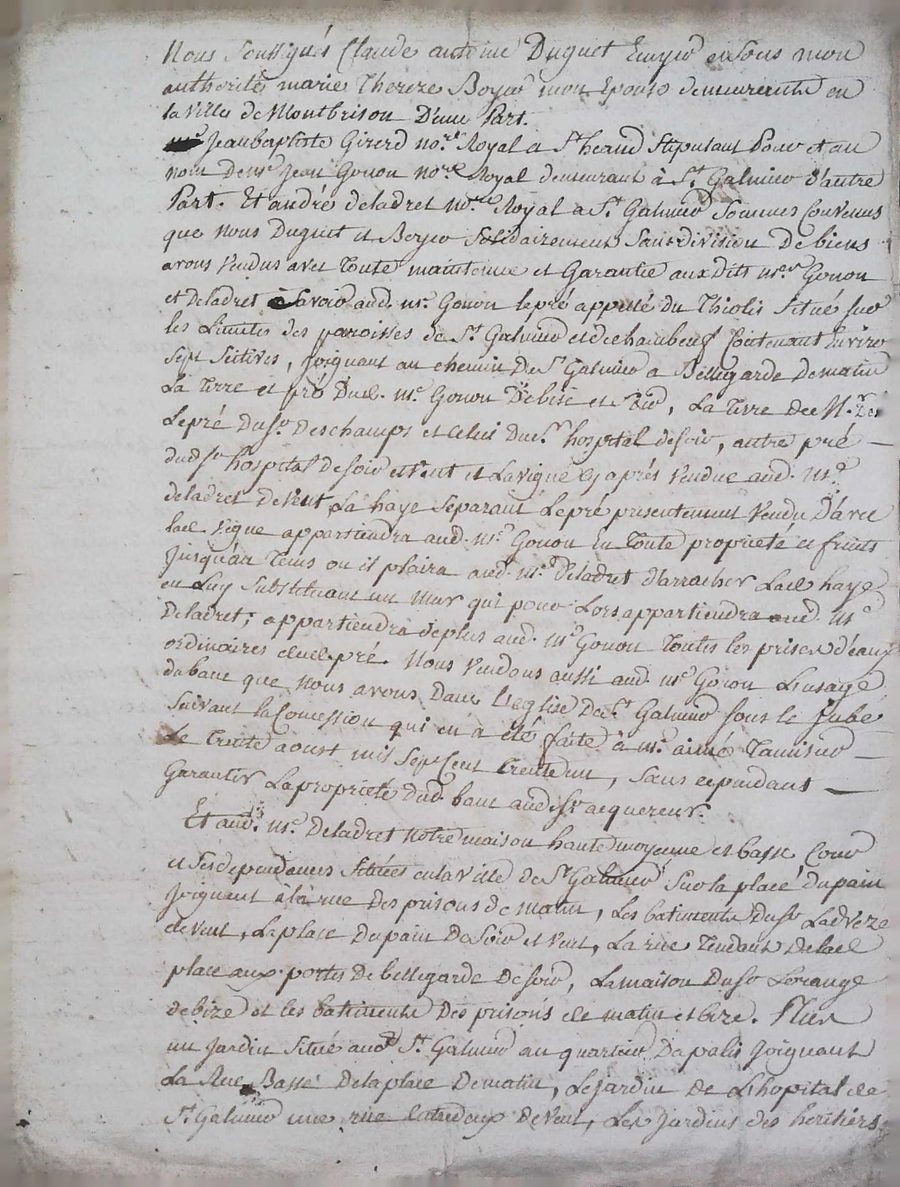 Nous soussignés Claude antoine Duguet Ecuyer et sous mon
authorité marie Therese Boyer mon Epouse demeurents en
la Ville de Montbrison D'une Part.
Jeanbaptiste Girerd no.re Royal a St heand Stipulant Pour et au
nom de me Jean Gonon no.re Royal demeurant à St. Galmier d'autre
Part. Et andré deladret no.re Royal a St. Galmier Sommes Convenus
que Nous Duguet et Boyer Solidairement Sans division De biens
avons Vendus avec Toute maintenue et Garantie auxdits m.es Gonon
et deladret Savoir aud. me. Gonon lepré appellé du Thiolis Situé sur
les Limittes des paroisses de St. Galmier et de chambeuf Contenant Environ
sept Seitives, joignant au chemin De St Galmier a Bellegarde Dematin
La Terre et pré Dud. me. Gonon De bise et , La Terre de
Lepré du Sr. Deschamps et Celui du hospital desoir, autre pré
dud hospital desoir et vent et Lavigne cy aprés Vendue aud. me
deladret devent, La haye Separant Lepré presentement Vendu D'avec
lad. vigne appartiendra aud. me. Gonon en Toute proprieté et fruits
Jusqu'au Tems ou il plaira aud. me. Deladret d'arracher Lad. haye
en Luy Substituant un Mur qui pour Lors appartiendra aud. me
Deladret; appartiendra deplus aud. me Gonon Toutes les prises d'eaux
ordinaires dud. pré. Nous Vendons aussi aud. me Gonon L'usage
dubanc que Nous avons Dans L'eglise De St. Galmier sous le Jubé
Suivant la Concession qui en a été faite à me. aimé Tamisier
Le Trente aoust mil Sept Cent Trente , Sans cependant
Garantir La proprieté dud. banc aud. Sr acquereur.
Et aud. me. Deladret notre maison haute moyenne et basse, Cour
et Ses dependances Situées en la Ville de St Galmier Sur la place du pain
Joignant à la rue des prisons de matin, Les batiments du Sr
devent, La place Dupain De Soir et Vent, La rue Tendant De lad.
place aux portes De bellegarde De soir, La maison Du Sr Lorange
debize et les batiments Des prisons de matin et bize. Plus
un Jardin Situé aud. St. Galmier au quartier Joignant
La Rue Basse De la place De matin, Le jardin de L'hopital de
St. Galmier une rue De Vent, Les Jardins des heritiers